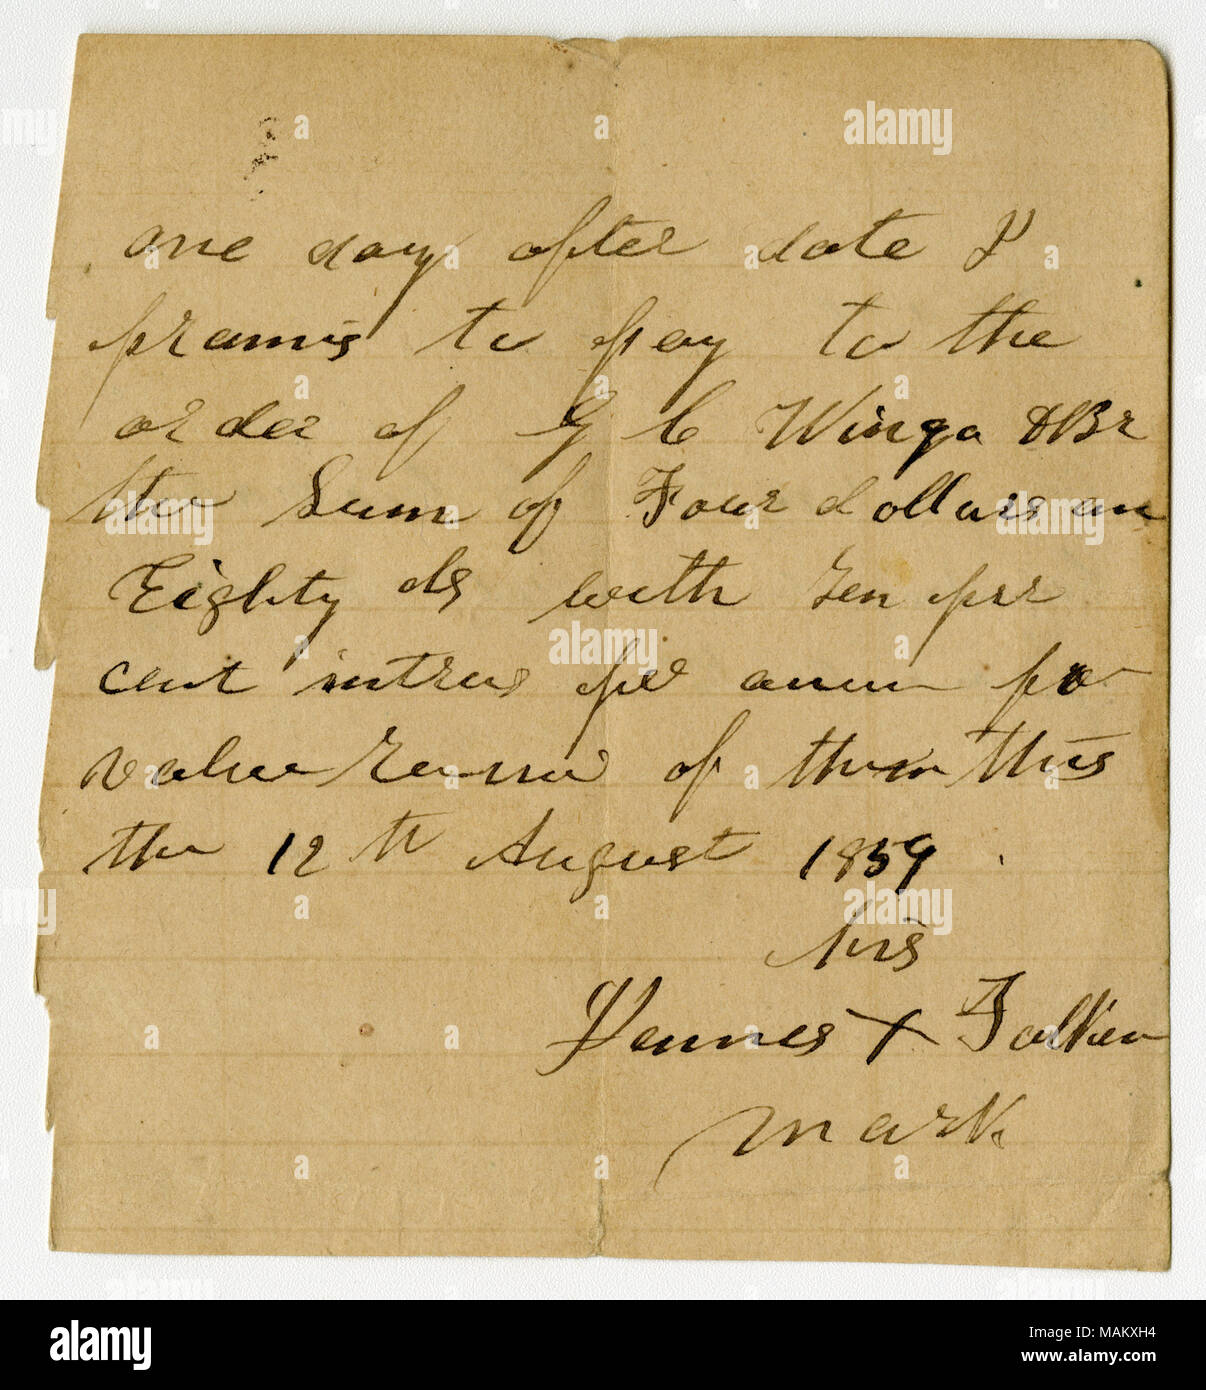 one day after date I
promis to pay to the
order of G C Winga & Br
the Sum of Four dollars an
Eighty cts with Ten per
cent intrus per anum for
value of them this
the 12th August 1859
his
X
mark
alamy
Image ID: MAKXH4
www.alamy.com